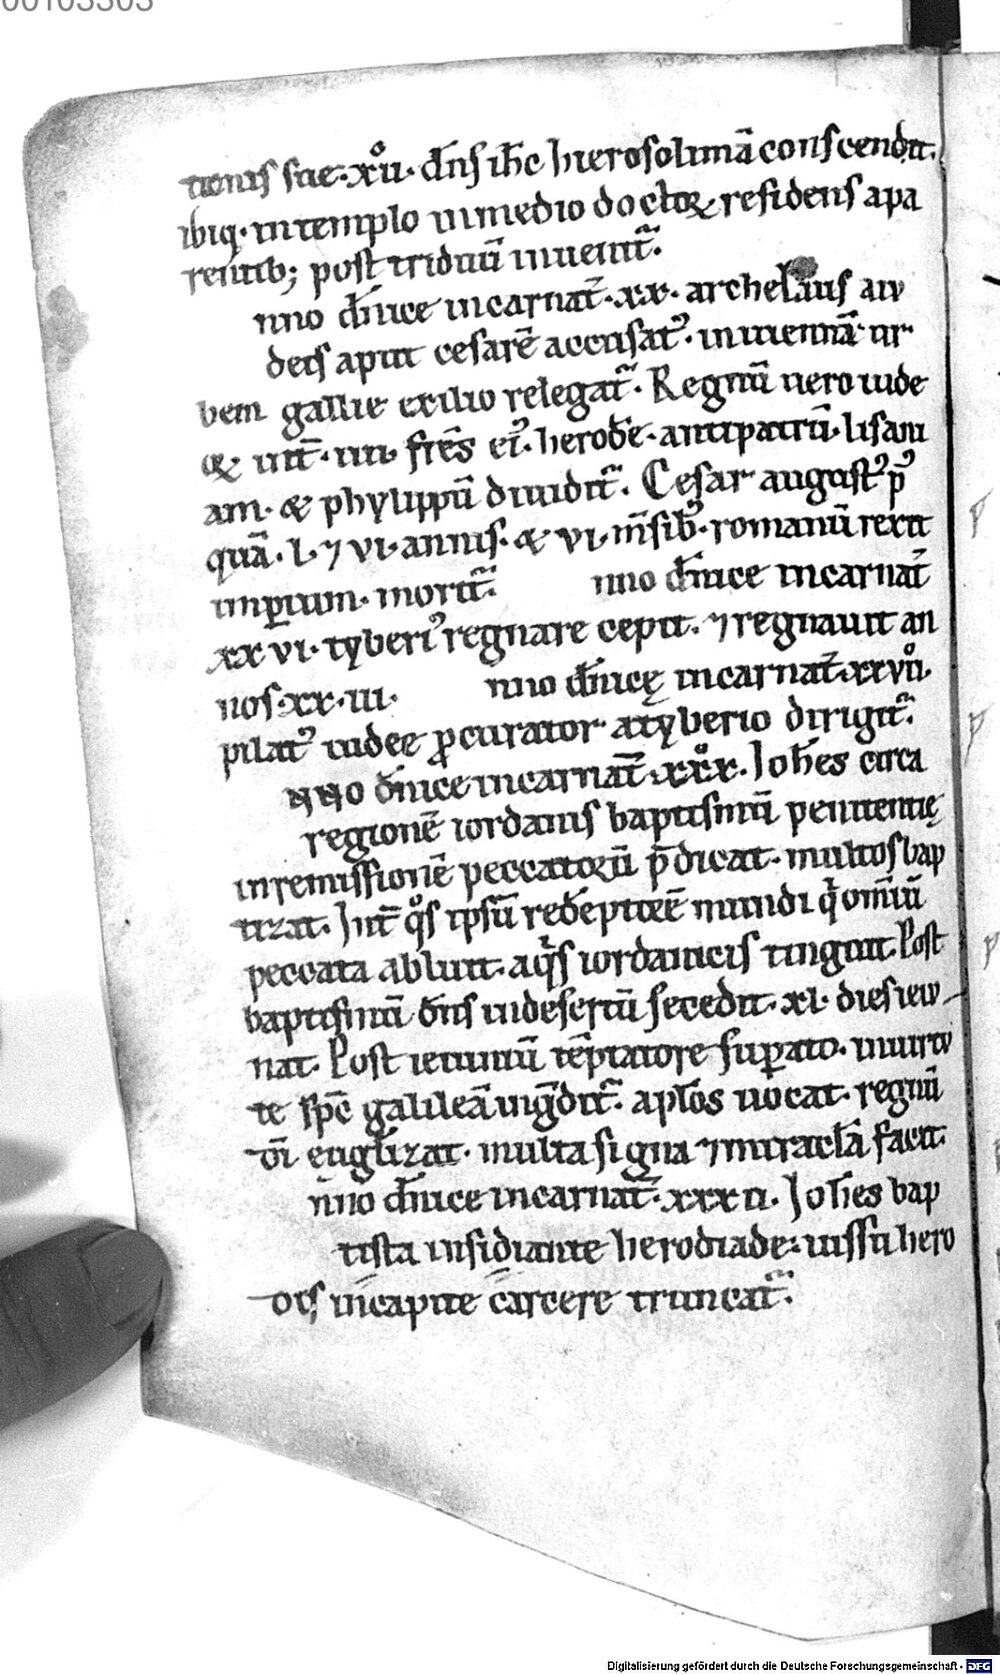 00103303
tionis sue·xııº· dn̄s ih̄c hierosolimā conscendit.
ibiq· in templo in medio doctoꝝ residens apa
rentib; post triduū inuenit᷑.
nno dn̄ice incarnat̄·xx· archelaus a iu
deis aput cesarē accusatꝰ· in uiennā ur
bem gallie exilio relegat᷑. Regnū uero iude
& int̄·iııı· fr̄es eiꝰ· herodē· antipatrū· lisani
am· & phylippū diuidit᷑. Cesar augustꝰ pꝰ
quā· l· ⁊ vi· annis· & vi· m̄sibꝰ· romanū rexit
imꝑium· morit᷑. nno dn̄ice incarnat̄
xxvi· tyberiꝰ regnare cepit. ⁊ regnauit an
nos·xx·iii· nno dn̄icę incarnat̄·xxvııº·
pilatꝰ iudeę ꝓcurator a tyberio dirigit᷑.
nno dn̄ice incarnat̄·xxºx· Joh̄es circa
regionē iordanis baptismū penitentię
in remissionē peccatorū p̄dicat· multos bap
tizat. Int̄ qºs ipsū redēptorē mundi qͥ omiū
peccata abluit· aqͥs iordanicis tinguit. Post
baptismū dn̄s in desertū secedit· xl· dies ieiu
nat. Post ieiuniū tēptatore suꝑato· in uirtu
te sp̄c galileā ingͣdit᷑. apl̄os uocat· regnū
dī eugl̄izat· multa signa ⁊ miracl̄a facit.
nno dn̄ice incarnat̄·xxxii· Joh̄es bap
tista insidiante herodiade· iussu hero
dis in capite carcere truncat᷑.
Digitalisierung gefördert durch die Deutsche Forschungsgemeinschaft - DFG